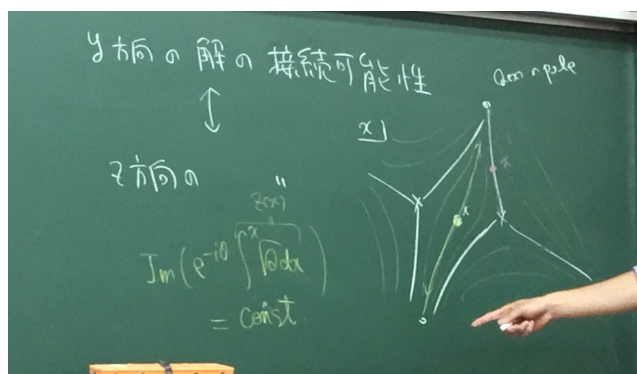 y方向の解の接続可能性
↕
z方向の 〃
z(x)
Im(e^{-iθ} ∫^x √Q dx)
= const.
Q(x)の pole
x
x
x